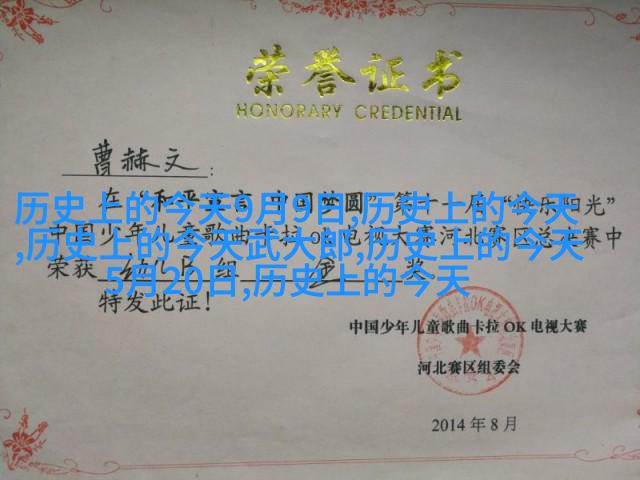 荣誉证书
HONORARY CREDENTIAL
曹赫文：
历史上的今天9月9日,历史上的今天
,历史上的今天武大郎,历史上的今天
5月20日,历史上的今天
在“和平宣言 中国梦圆”第十一届“快乐阳光”
中国少年儿童歌曲卡拉OK电视大赛河北赛区总决赛中
荣获 幼儿B 组 金 奖
特发此证！
中国少年儿童歌曲卡拉OK电视大赛
河北赛区组委会
2014年8月